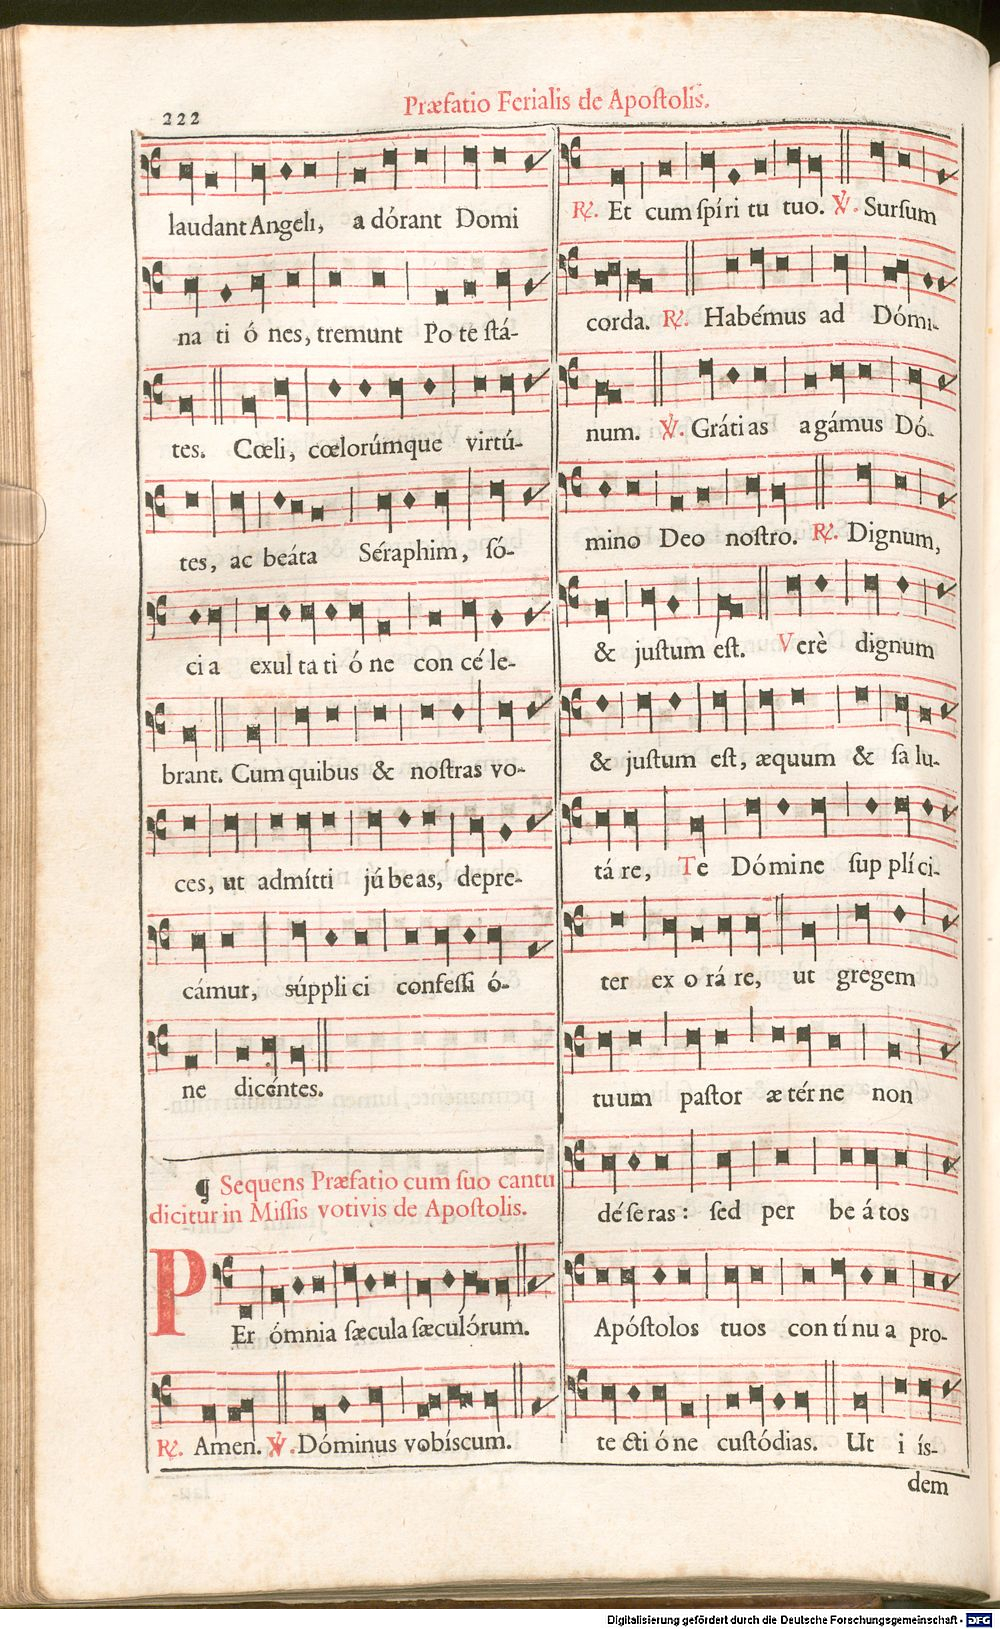 222
Præfatio Ferialis de Apoſtolis.
laudant Angeli, a dórant Domi
na ti ó nes, tremunt Po te ſtá-
tes. Cœli, cœlorúmque virtú-
tes, ac beáta Séraphim, ſó-
ci a exul ta ti ó ne con cé le-
brant. Cum quibus & noſtras vo-
ces, ut admítti jú be as, depre-
cámur, súppli ci confeſſi ó-
ne dicéntes.
¶ Sequens Præfatio cum ſuo cantu
dicitur in Miſſis votivis de Apoſtolis.
PEr ómnia ſæcula ſæculórum.
℟. Amen. ℣. Dóminus vobíscum.
℟. Et cum ſpíri tu tuo. ℣. Surſum
corda. ℟. Habémus ad Dómi-
num. ℣. Gráti as a gámus Dó-
mino Deo noſtro. ℟. Dignum,
& juſtum eſt. Verè dignum
& juſtum eſt, æquum & ſa lu-
tá re, Te Dómine ſup plí ci-
ter ex o rá re, ut gregem
tuum paſtor æ tér ne non
dé ſe ras: ſed per be á tos
Apóſtolos tuos con tí nu a pro-
te cti ó ne cuſtódias. Ut i ís-
dem
Digitalisierung gefördert durch die Deutsche Forschungsgemeinschaft - DFG